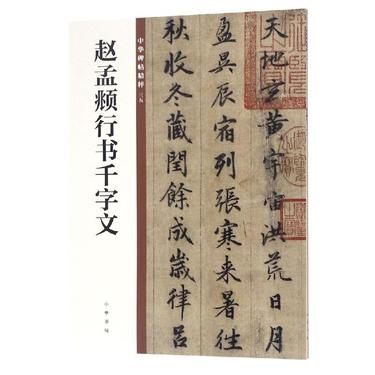 中华碑帖精粹 三五
赵孟頫行书千字文
中华书局
天地玄黄宇宙洪荒日月
盈昃辰宿列張寒来暑往
秋收冬藏閏餘成歲律吕